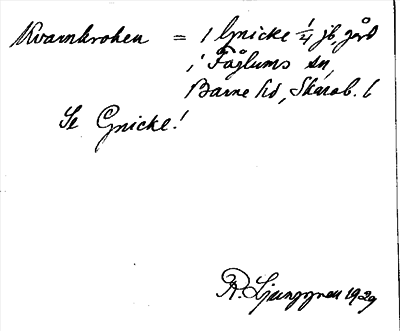 Kvarnkroken = 1 Gnicke 1/4 jb, gård
i Fåglums sn,
Barne hd, Skarab. l
Se Gnicke!
R. Ljunggren 1929